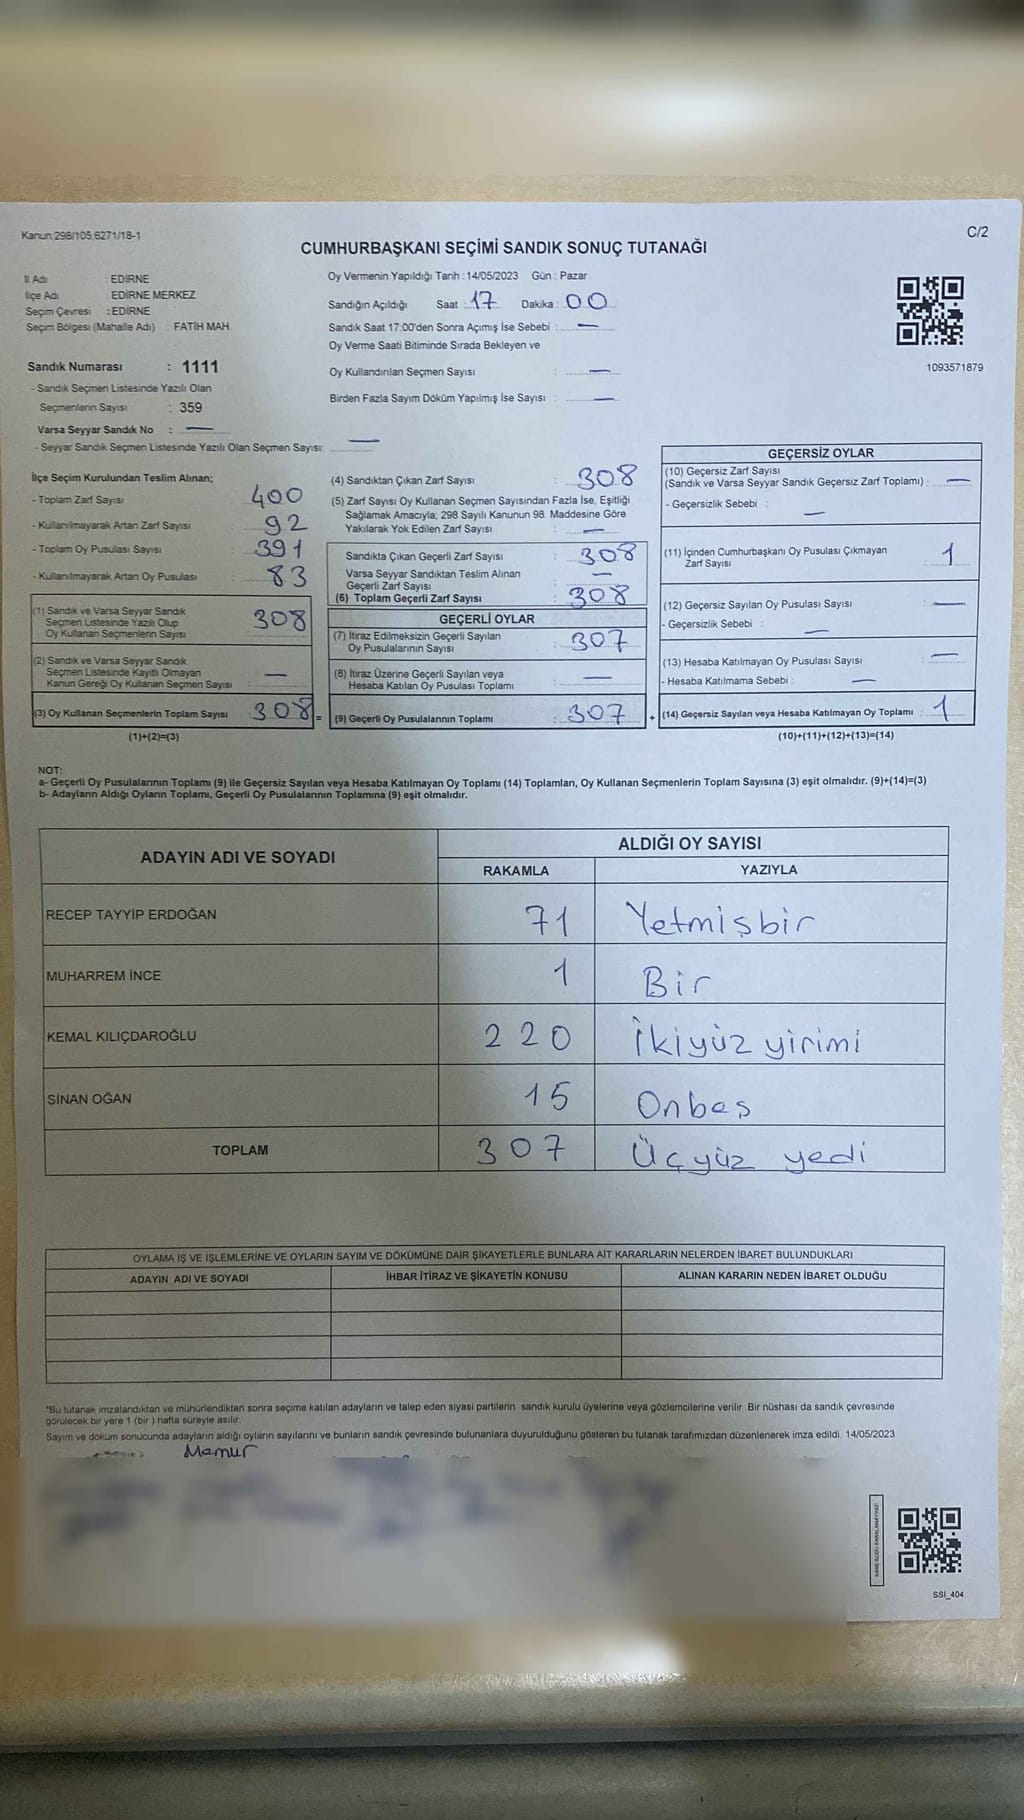 Kanun:298/105,6271/18-1
C/2
CUMHURBAŞKANI SEÇİMİ SANDIK SONUÇ TUTANAĞI
İl Adı : EDİRNE
İlçe Adı : EDİRNE MERKEZ
Seçim Çevresi : EDİRNE
Seçim Bölgesi (Mahalle Adı) : FATİH MAH.
Sandık Numarası : 1111
- Sandık Seçmen Listesinde Yazılı Olan
Seçmenlerin Sayısı : 359
Varsa Seyyar Sandık No : —
- Seyyar Sandık Seçmen Listesinde Yazılı Olan Seçmen Sayısı: —
Oy Vermenin Yapıldığı Tarih : 14/05/2023 Gün : Pazar
Sandığın Açıldığı Saat : 17 Dakika : 00
Sandık Saat 17:00'den Sonra Açımış İse Sebebi : —
Oy Verme Saati Bitiminde Sırada Bekleyen ve
Oy Kullandırılan Seçmen Sayısı : —
Birden Fazla Sayım Döküm Yapılmış İse Sayısı : —
1093571879
İlçe Seçim Kurulundan Teslim Alınan;
- Toplam Zarf Sayısı : 400
- Kullanılmayarak Artan Zarf Sayısı : 92
- Toplam Oy Pusulası Sayısı : 391
- Kullanılmayarak Artan Oy Pusulası : 83
(1) Sandık ve Varsa Seyyar Sandık
Seçmen Listesinde Yazılı Olup
Oy Kullanan Seçmenlerin Sayısı : 308
(2) Sandık ve Varsa Seyyar Sandık
Seçmen Listesinde Kayıtlı Olmayan
Kanun Gereği Oy Kullanan Seçmen Sayısı : —
(3) Oy Kullanan Seçmenlerin Toplam Sayısı : 308 =
(1)+(2)=(3)
(4) Sandıktan Çıkan Zarf Sayısı : 308
(5) Zarf Sayısı Oy Kullanan Seçmen Sayısından Fazla İse, Eşitliği
Sağlamak Amacıyla, 298 Sayılı Kanunun 98. Maddesine Göre
Yakılarak Yok Edilen Zarf Sayısı : —
Sandıkta Çıkan Geçerli Zarf Sayısı : 308
Varsa Seyyar Sandıktan Teslim Alınan
Geçerli Zarf Sayısı : —
(6) Toplam Geçerli Zarf Sayısı : 308
GEÇERLİ OYLAR
(7) İtiraz Edilmeksizin Geçerli Sayılan
Oy Pusulalarının Sayısı : 307
(8) İtiraz Üzerine Geçerli Sayılan veya
Hesaba Katılan Oy Pusulası Toplamı : —
(9) Geçerli Oy Pusulalarının Toplamı : 307 +
GEÇERSİZ OYLAR
(10) Geçersiz Zarf Sayısı
(Sandık ve Varsa Seyyar Sandık Geçersiz Zarf Toplamı) : —
- Geçersizlik Sebebi : —
(11) İçinden Cumhurbaşkanı Oy Pusulası Çıkmayan
Zarf Sayısı : 1
(12) Geçersiz Sayılan Oy Pusulası Sayısı : —
- Geçersizlik Sebebi : —
(13) Hesaba Katılmayan Oy Pusulası Sayısı : —
- Hesaba Katılmama Sebebi : —
(14) Geçersiz Sayılan veya Hesaba Katılmayan Oy Toplamı : 1
(10)+(11)+(12)+(13)=(14)
NOT:
a- Geçerli Oy Pusulalarının Toplamı (9) ile Geçersiz Sayılan veya Hesaba Katılmayan Oy Toplamı (14) Toplamları, Oy Kullanan Seçmenlerin Toplam Sayısına (3) eşit olmalıdır. (9)+(14)=(3)
b- Adayların Aldığı Oyların Toplamı, Geçerli Oy Pusulalarının Toplamına (9) eşit olmalıdır.
ADAYIN ADI VE SOYADI
ALDIĞI OY SAYISI
RAKAMLA YAZIYLA
RECEP TAYYİP ERDOĞAN 71 Yetmişbir
MUHARREM İNCE 1 Bir
KEMAL KILIÇDAROĞLU 220 İkiyüz yirimi
SİNAN OĞAN 15 Onbeş
TOPLAM 307 Üçyüz yedi
OYLAMA İŞ VE İŞLEMLERİNE VE OYLARIN SAYIM VE DÖKÜMÜNE DAİR ŞİKAYETLERLE BUNLARA AİT KARARLARIN NELERDEN İBARET BULUNDUKLARI
ADAYIN ADI VE SOYADI İHBAR İTİRAZ VE ŞİKAYETİN KONUSU ALINAN KARARIN NEDEN İBARET OLDUĞU
*Bu tutanak imzalandıktan ve mühürlendikten sonra seçime katılan adayların ve talep eden siyasi partilerin sandık kurulu üyelerine veya gözlemcilerine verilir. Bir nüshası da sandık çevresinde
görülecek bir yere 1 (bir) hafta süreyle asılır.
Sayım ve döküm sonucunda adayların aldığı oyların sayılarını ve bunların sandık çevresinde bulunanlara duyurulduğunu gösteren bu tutanak tarafımızdan düzenlenerek imza edildi. 14/05/2023
Memur
KARE KODU KARALAMAYINIZ!
SSİ_404